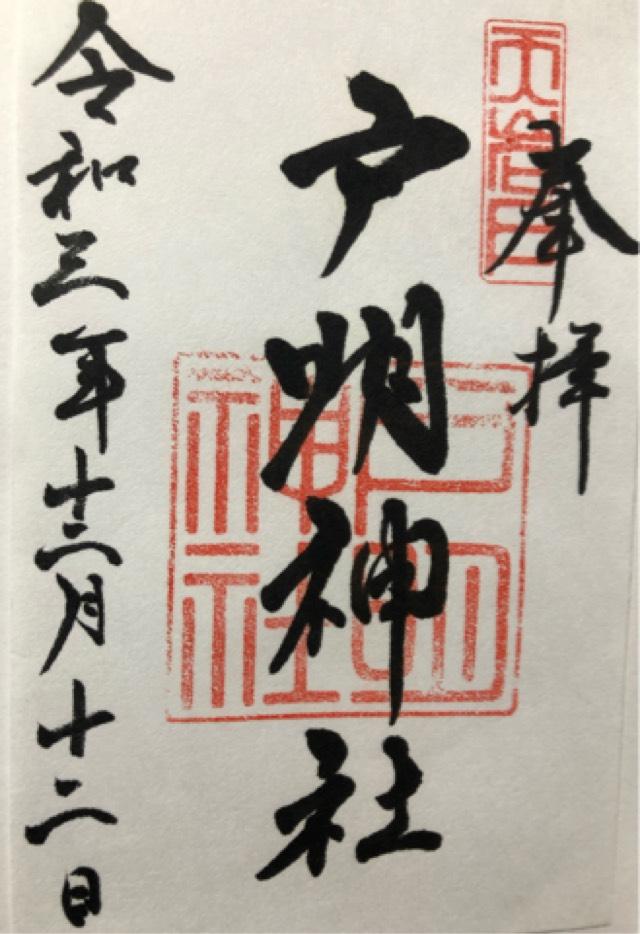 奉拝
戸明神社
令和三年十二月十二日
戸明神社